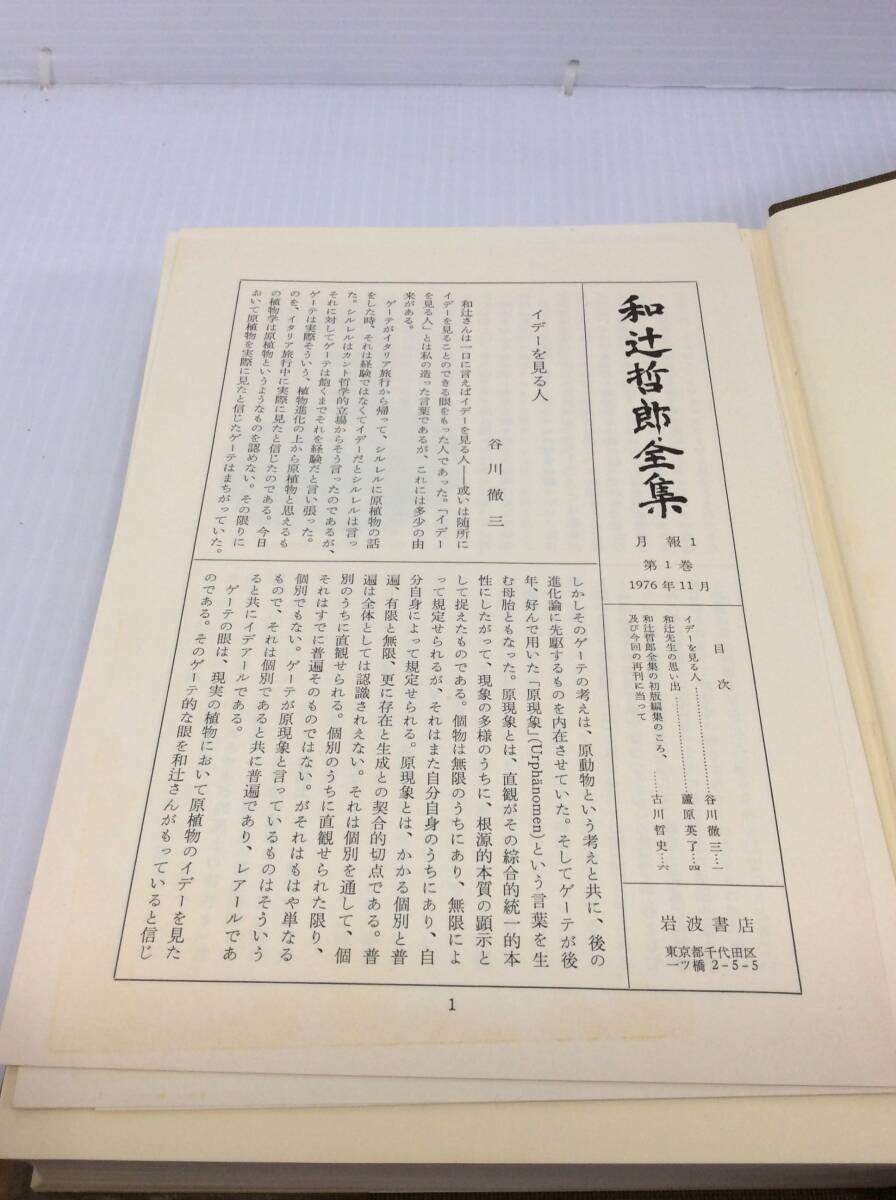 和辻哲郎全集
月報1
第1巻
1976年11月
目次
イデーを見る人………………………谷川徹三…一
和辻先生の思い出……………………蘆原英了…四
和辻哲郎全集の初版編集のころ、
及び今回の再刊に当って……古川哲史…六
岩波書店
東京都千代田区
一ツ橋2-5-5
イデーを見る人
谷川徹三
和辻さんは一口に言えばイデーを見る人——或いは随所に
イデーを見ることのできる眼をもった人であった。「イデー
を見る人」とは私の造った言葉であるが、これには多少の由
来がある。
ゲーテがイタリア旅行から帰って、シルレルに原植物の話
をした時、それは経験ではなくてイデーだとシルレルは言っ
た。シルレルはカント哲学的立場からそう言ったのであるが、
それに対してゲーテは飽くまでそれを経験だと言い張った。
ゲーテは実際そういう、植物進化の上から原植物と思えるも
のを、イタリア旅行中に実際に見たと信じたのである。今日
の植物学は原植物というようなものを認めない。その限りに
おいて原植物を実際に見たと信じたゲーテはまちがっていた。
しかしそのゲーテの考えは、原動物という考えと共に、後の
進化論に先駆するものを内在させていた。そしてゲーテが後
年、好んで用いた「原現象」(Urphänomen)という言葉を生
む母胎ともなった。原現象とは、直観がその綜合的統一的本
性にしたがって、現象の多様のうちに、根源的本質の顕示と
して捉えたものである。個物は無限のうちにあり、無限によ
って規定せられるが、それはまた自分自身のうちにあり、自
分自身によって規定せられる。原現象とは、かかる個別と普
遍、有限と無限、更に存在と生成との契合的切点である。普
遍は全体としては認識されえない。それは個別を通して、個
別のうちに直観せられる。個別のうちに直観せられた限り、
それはすでに普遍そのものではない。がそれはもはや単なる
個別でもない。ゲーテが原現象と言っているものはそういう
もので、それは個別であると共に普遍であり、レアールであ
ると共にイデアールである。
ゲーテの眼は、現実の植物において原植物のイデーを見た
のである。そのゲーテ的な眼を和辻さんがもっていると信じ
1